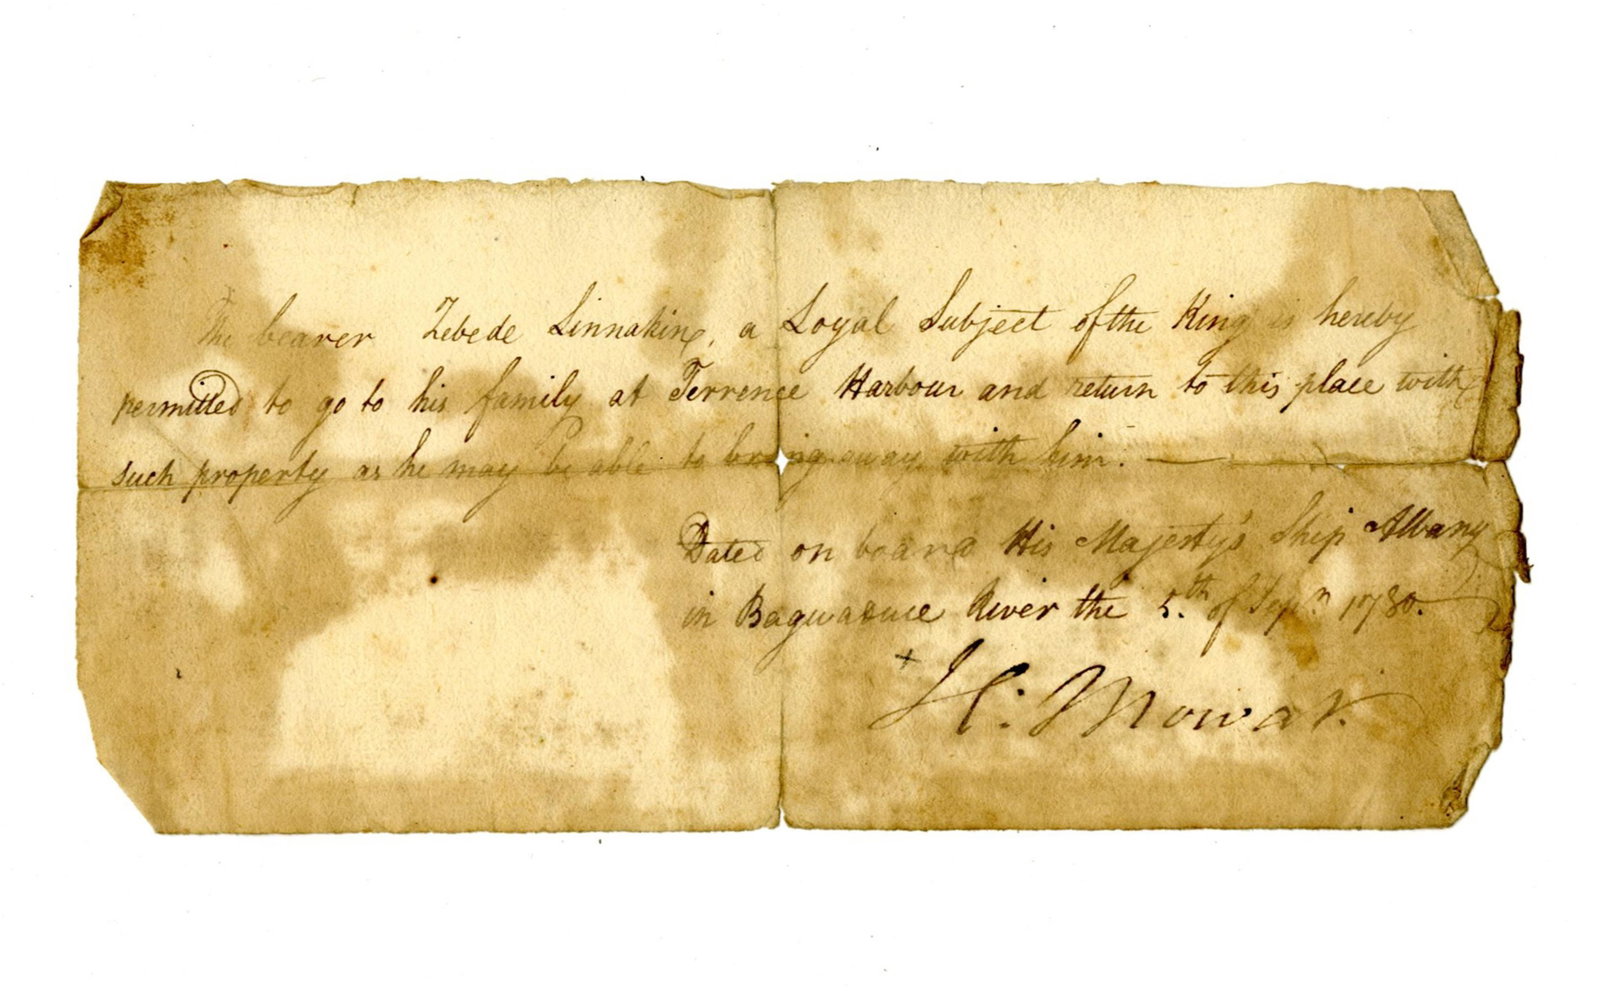 The bearer Zebede Linnakin, a Loyal Subject of the King is hereby
permitted to go to his family at Terrence Harbour and return to this place with
such property as he may be able to bring away with him. —
Dated on board His Majesty's Ship Albany
in Baguaduce River the 5.th of Sepr. 1780.
x H: Mowat.